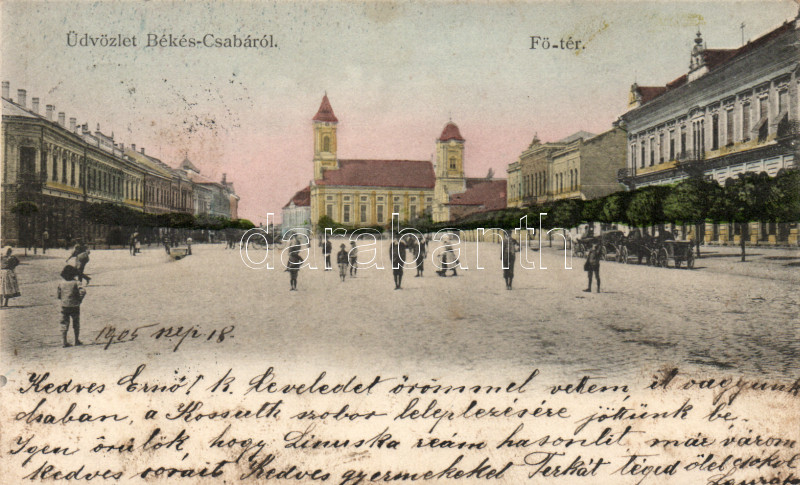 Üdvözlet Békés-Csabáról.
Fö-tér.
darabanth
1905 sep 18.
Kedves Ernő! B. Leveledet örömmel vettem, itt vagyunk
Csabán, a Kossuth szobor leleplezésére jöttünk be.
Igen örülök hogy Linuska reám hasonlit már várom
kedves sorait Kedves gyermekeket Terkát téged ölel csókol